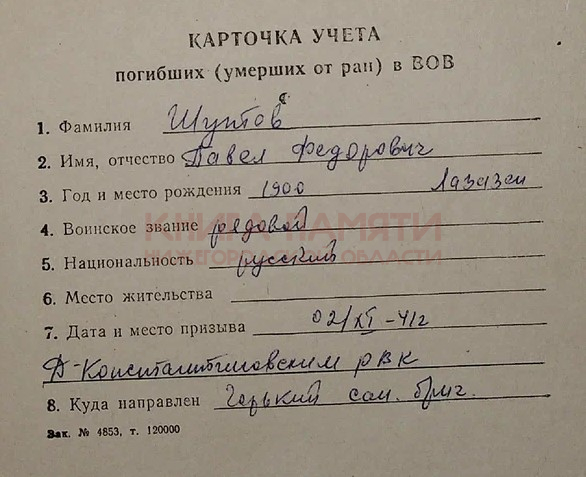 КАРТОЧКА УЧЕТА
погибших (умерших от ран) в ВОВ
1. Фамилия Шутов
2. Имя, отчество Павел Федорович
3. Год и место рождения 1900 Лазази
4. Воинское звание рядовой
КНИГА ПАМЯТИ
НИЖЕГОРОДСКОЙ ОБЛАСТИ
5. Национальность русский
6. Место жительства
7. Дата и место призыва 02/XI-41г
Д-Константиновским РВК
8. Куда направлен Горький сан. бриг.
Зак. № 4853, т. 120000